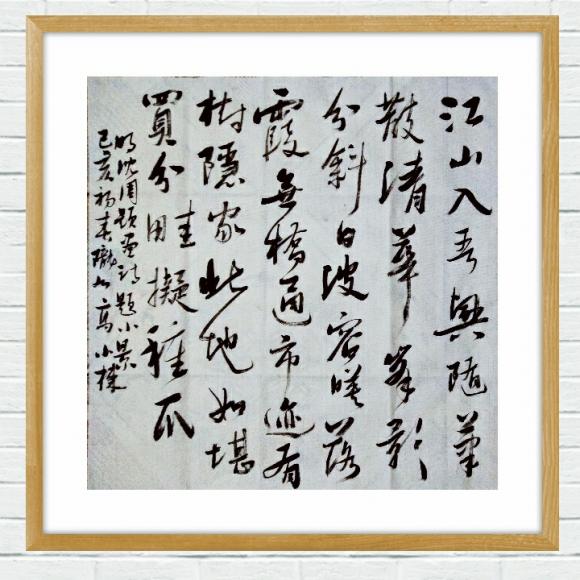 江山入吾興隨筆
散清華峯影
分斜日波容曖落
霞無橋通市迹有
樹隱家此地如堪
買分畦擬種瓜
明沈周題畫詩題小景
己亥初春隴高小棟